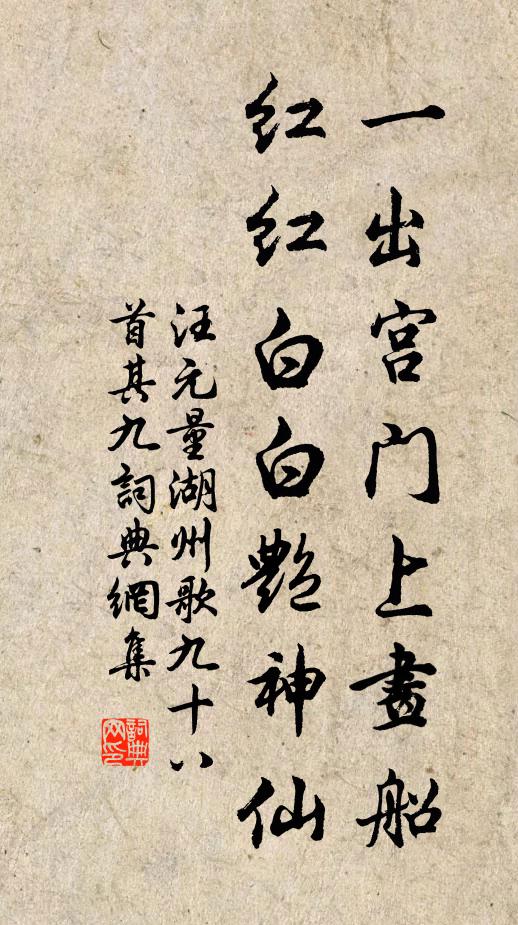 一出宫门上畫船
红红白白艶神仙
汪元量湖州歌九十八
首其九詞典網集
詞典网印